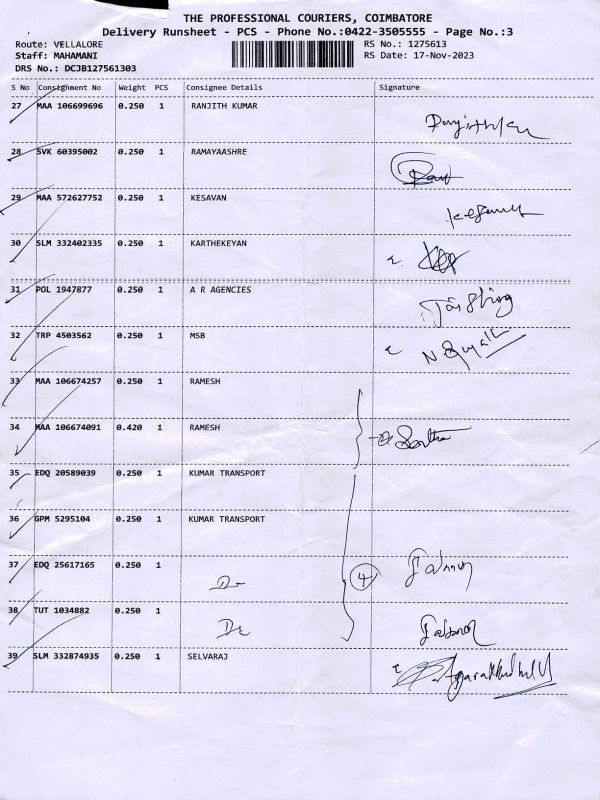 THE PROFESSIONAL COURIERS, COIMBATORE
Delivery Runsheet - PCS - Phone No.:0422-3505555 - Page No.:3
Route: VELLALORE RS No.: 1275613
Staff: MAHAMANI RS Date: 17-Nov-2023
DRS No.: DCJB127561303
S No Consignment No Weight PCS Consignee Details Signature
27 MAA 106699696 0.250 1 RANJITH KUMAR
28 SVK 60395002 0.250 1 RAMAYAASHRE
29 MAA 572627752 0.250 1 KESAVAN
30 SLM 332402335 0.250 1 KARTHEKEYAN
31 POL 1947877 0.250 1 A R AGENCIES
32 TRP 4503562 0.250 1 MSB
33 MAA 106674257 0.250 1 RAMESH
34 MAA 106674091 0.420 1 RAMESH
35 EDQ 20589039 0.250 1 KUMAR TRANSPORT
36 GPM 5295104 0.250 1 KUMAR TRANSPORT
37 EDQ 25617165 0.250 1 4
38 TUT 1034882 0.250 1
39 SLM 332874935 0.250 1 SELVARAJ